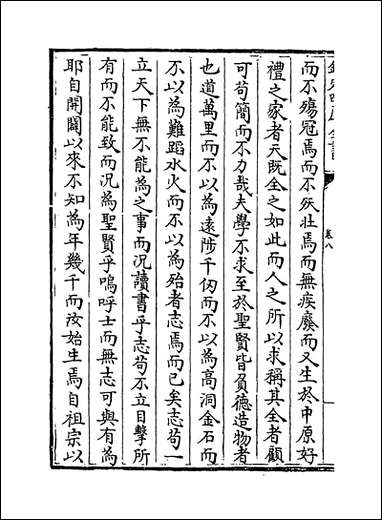 欽定四庫全書
卷八
而不殤冠焉而不夭壯焉而無疾廢而又生於中原好
禮之家者天既全之如此而人之所以求稱其全者顧
可苟簡而不力哉夫學不求至於聖賢皆負德造物者
也道萬里而不以為遠陟千仞而不以為高洞金石而
不以為難蹈水火而不以為殆者志焉而已矣志苟一
立天下無不能為之事而況讀書乎志苟不立目擊所
有而不能致而況為聖賢乎嗚呼士而無志可與有為
耶自開闢以來不知為年幾千而汝始生焉自祖宗以